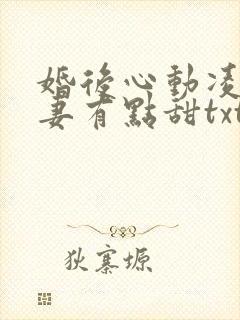 婚後心動凌
妻有點甜txt
狄寨塬